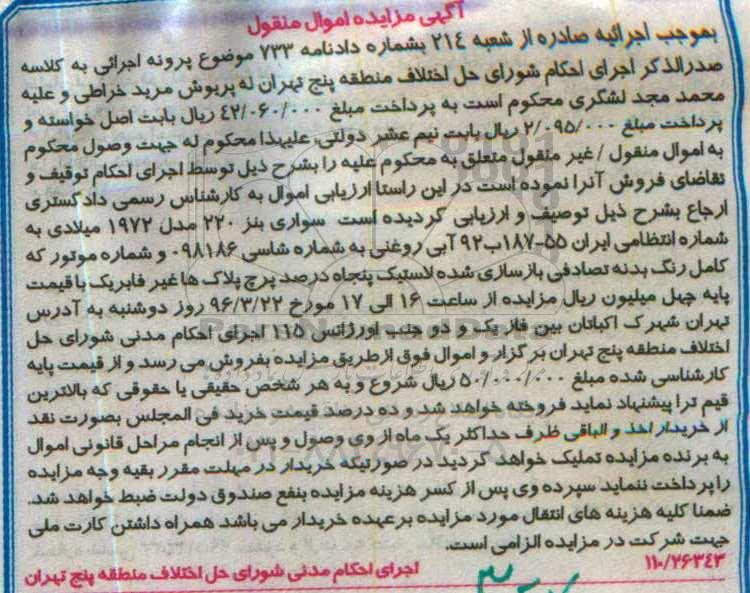 آگهی مزایده اموال منقول
بموجب اجرائیه صادره از شعبه ۲۱٤ بشماره دادنامه ۷۳۳ موضوع پرونه اجرائی به کلاسه
صدرالذکر اجرای احکام شورای حل اختلاف منطقه پنج تهران له پریوش مرید خراطی و علیه
محمد مجد لشگری محکوم است به پرداخت مبلغ ٤۲/۰۶۰/۰۰۰ ریال بابت اصل خواسته و
پرداخت مبلغ ۲/۰۹۵/۰۰۰ ریال بابت نیم عشر دولتی، علیهذا محکوم له جهت وصول محکوم
به اموال منقول / غیر منقول متعلق به محکوم علیه را بشرح ذیل توسط اجرای احکام توقیف و
تقاضای فروش آنرا نموده است در این راستا ارزیابی اموال به کارشناس رسمی دادگستری
ارجاع بشرح ذیل توصیف و ارزیابی گردیده است سواری بنز ۲۲۰ مدل ۱۹۷۲ میلادی به
شماره انتظامی ایران ۵۵-۱۸۷ب۹۲ آبی روغنی به شماره شاسی ۰۹۸۱۸۶ و شماره موتور که
کامل رنگ بدنه تصادفی بازسازی شده لاستیک پنجاه درصد پرچ پلاک ها غیر فابریک با قیمت
پایه چهل میلیون ریال مزایده از ساعت ۱۶ الی ۱۷ مورخ ۹۶/۳/۲۲ روز دوشنبه به آدرس
تهران شهرک اکباتان بین فاز یک و دو جنب اورژانس ۱۱۵ اجرای احکام مدنی شورای حل
اختلاف منطقه پنج تهران برگزار و اموال فوق ازطریق مزایده بفروش می رسد و از قیمت پایه
کارشناسی شده مبلغ ۵۰/۰۰۰/۰۰۰ ریال شروع و به هر شخص حقیقی یا حقوقی که بالاترین
قیم ترا پیشنهاد نماید فروخته خواهد شد و ده درصد قیمت خرید فی المجلس بصورت نقد
از خریدار اخذ و الباقی ظرف حداکثر یک ماه از وی وصول و پس از انجام مراحل قانونی اموال
به برنده مزایده تملیک خواهد گردید در صورتیکه خریدار در مهلت مقرر بقیه وجه مزایده
را پرداخت ننماید سپرده وی پس از کسر هزینه مزایده بنفع صندوق دولت ضبط خواهد شد.
ضمنا کلیه هزینه های انتقال مورد مزایده برعهده خریدار می باشد همراه داشتن کارت ملی
جهت شرکت در مزایده الزامی است.
۱۱۰/۲۶۳٤۳ اجرای احکام مدنی شورای حل اختلاف منطقه پنج تهران